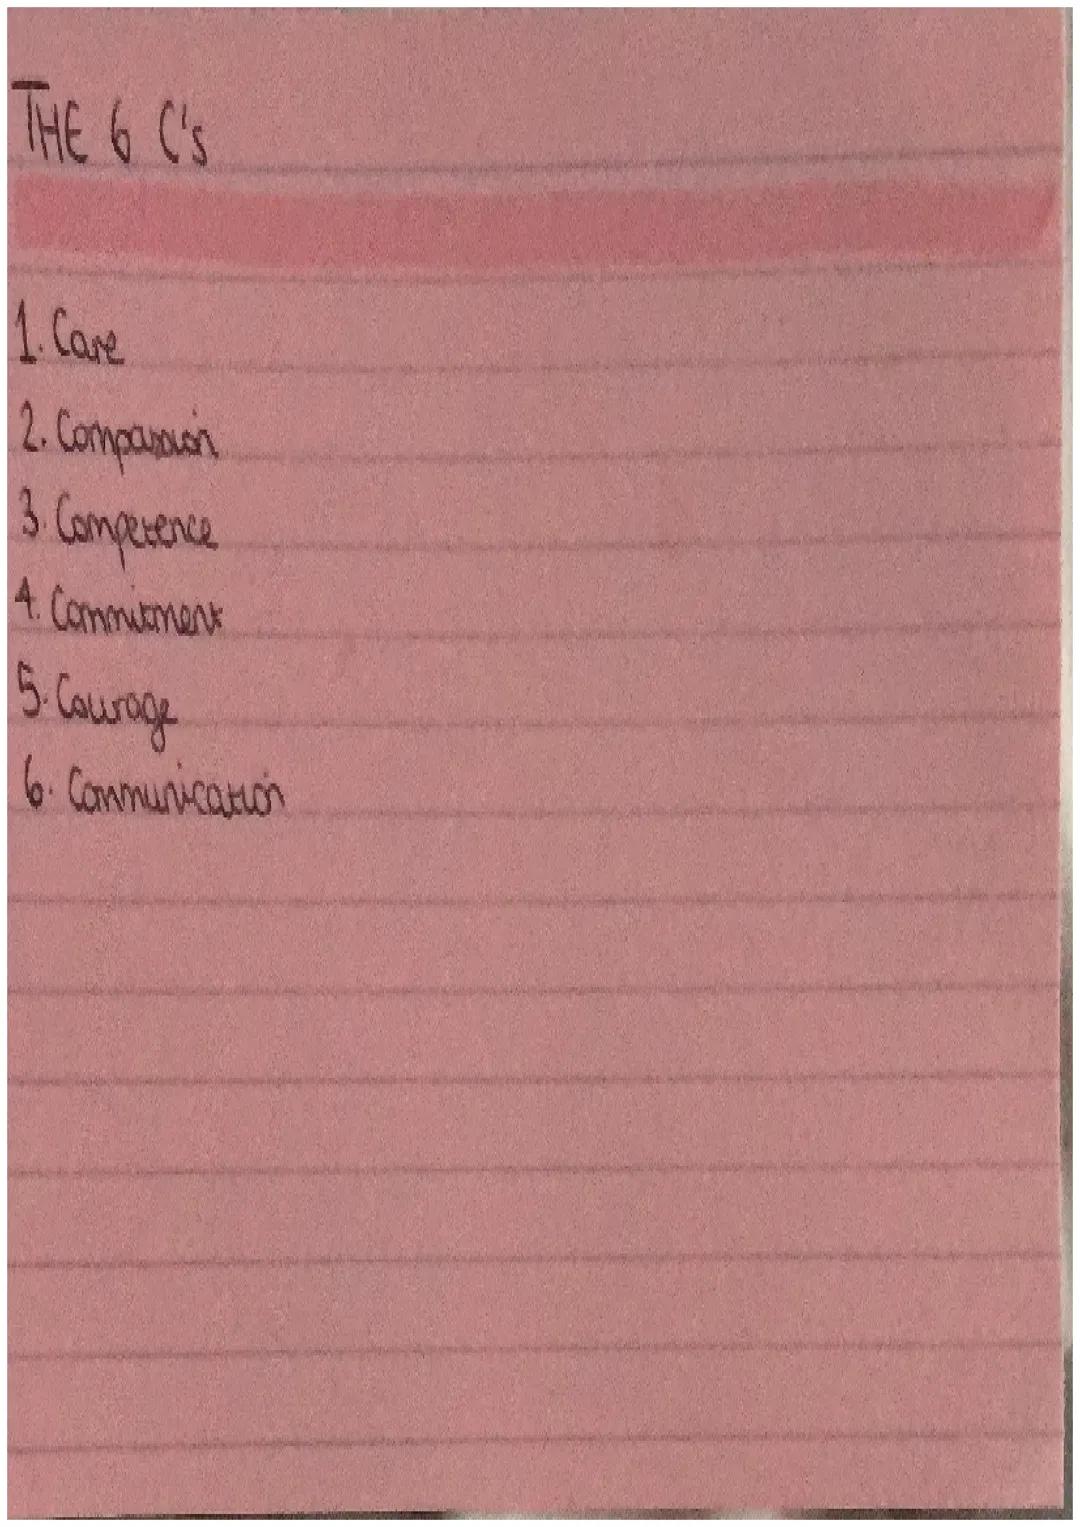 THE 6 C's
1. Care
2. Compassion
3. Competence
4. Commitment
5. Courage
6. Communication